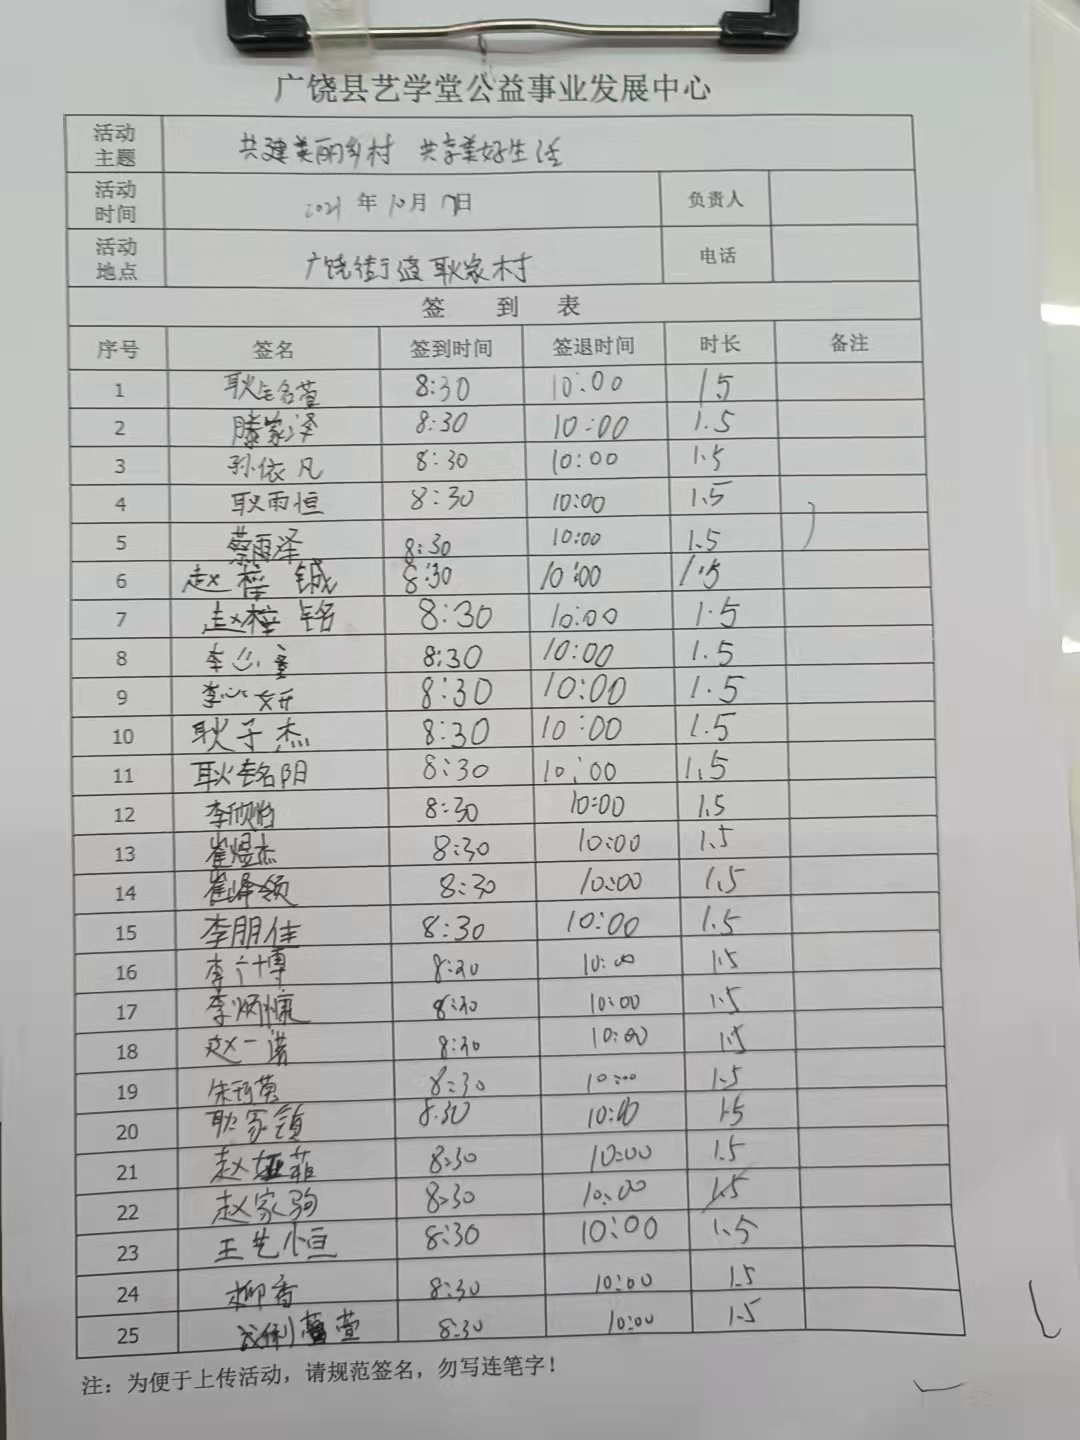 广饶县艺学堂公益事业发展中心
活动主题 共建美丽乡村 共享美好生活
活动时间 2021年10月17日 负责人
活动地点 广饶街道耿家村 电话
签 到 表
序号 签名 签到时间 签退时间 时长 备注
1 耿铭萱 8:30 10:00 1.5
2 滕家泽 8:30 10:00 1.5
3 孙依凡 8:30 10:00 1.5
4 耿雨恒 8:30 10:00 1.5
5 蔡雨泽 8:30 10:00 1.5
6 赵梓铖 8:30 10:00 1.5
7 赵梓铭 8:30 10:00 1.5
8 李心童 8:30 10:00 1.5
9 李心妍 8:30 10:00 1.5
10 耿子杰 8:30 10:00 1.5
11 耿铭阳 8:30 10:00 1.5
12 李欣怡 8:30 10:00 1.5
13 崔煜杰 8:30 10:00 1.5
14 崔峰领 8:30 10:00 1.5
15 李朋佳 8:30 10:00 1.5
16 李 博 8:30 10:00 1.5
17 李炳慷 8:30 10:00 1.5
18 赵一诺 8:30 10:00 1.5
19 朱珂萱 8:30 10:00 1.5
20 耿家镇 8:30 10:00 1.5
21 赵娅菲 8:30 10:00 1.5
22 赵家驹 8:30 10:00 1.5
23 王艺恒 8:30 10:00 1.5
24 柳香 8:30 10:00 1.5
25 萱 8:30 10:00 1.5
注：为便于上传活动，请规范签名，勿写连笔字！